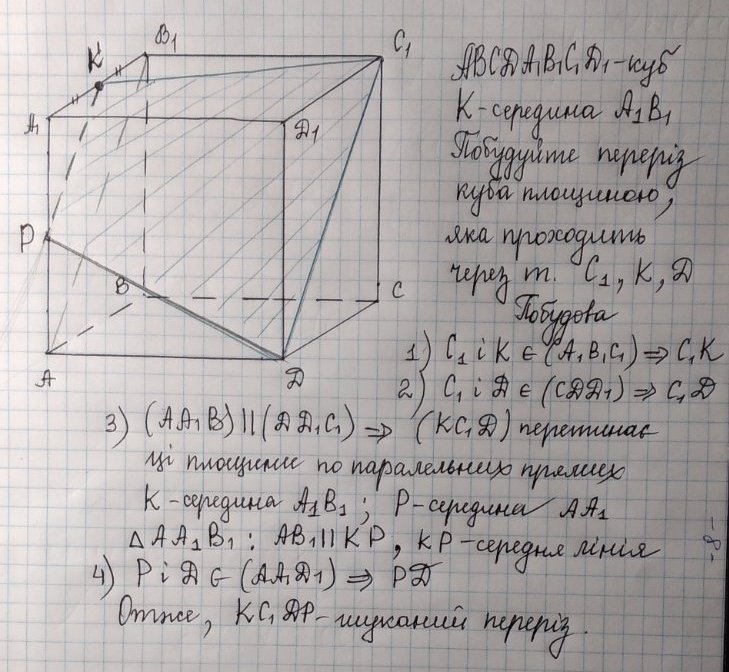 B₁
C₁
K
A₁
D₁
P
B
C
A
D
ABCDA₁B₁C₁D₁-куб
K-середина A₁B₁
Побудуйте переріз
куба площиною,
яка проходить
через т. C₁, K, D
Побудова
1) C₁ і K ∈ (A₁B₁C₁) ⇒ C₁K
2) C₁ і D ∈ (CDD₁) ⇒ C₁D
3) (AA₁B) || (DD₁C₁) ⇒ (KC₁D) перетинає
ці площини по паралельних прямих
K-середина A₁B₁; P-середина AA₁
△AA₁B₁: AB₁ || KP, KP-середня лінія
4) P і D ∈ (AA₁D₁) ⇒ PD
Отже, KC₁DP-шуканий переріз.
-8-